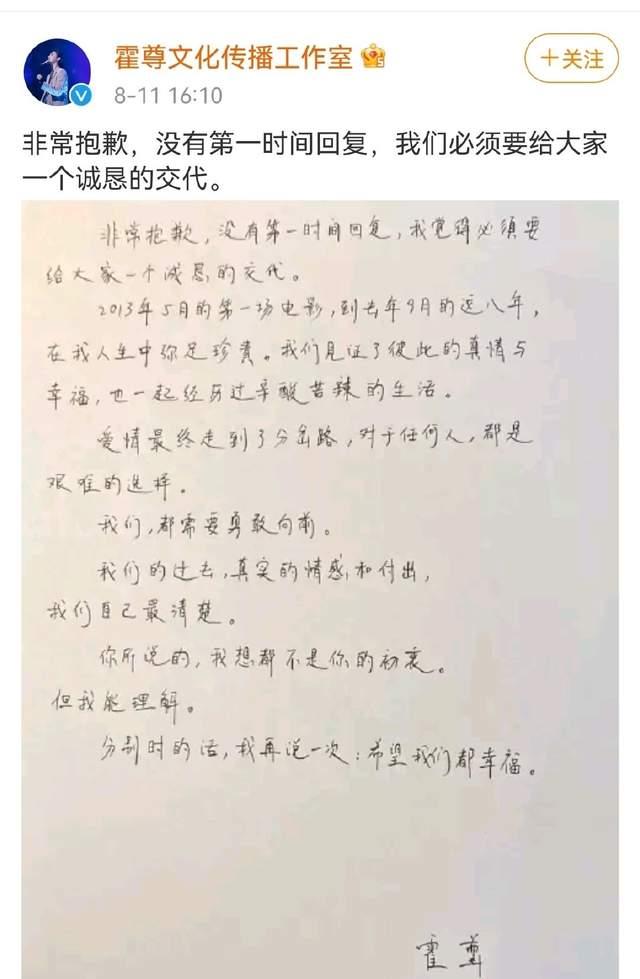 霍尊文化传播工作室
+关注
8-11 16:10
非常抱歉，没有第一时间回复，我们必须要给大家
一个诚恳的交代。
非常抱歉，没有第一时间回复，我觉得必须要
给大家一个诚恳的交代。
2013年5月的第一场电影，到去年9月的这八年，
在我人生中弥足珍贵。我们见证了彼此的真情与
幸福，也一起经历过辛酸苦辣的生活。
爱情最终走到了分岔路，对于任何人，都是
艰难的选择。
我们，都需要勇敢向前。
我们的过去，真实的情感和付出，
我们自己最清楚。
你所说的，我想都不是你的初衷。
但我能理解。
分别时的话，我再说一次：希望我们都幸福。
霍尊